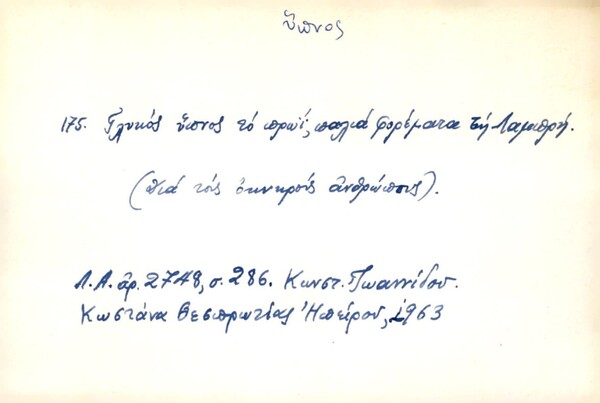 ὕπνος
175. Γλυκός ὕπνος τό πρωΐ, παλιά φορέματα τή Λαμπρή.
(Γιά τούς ὀκνηρούς ἀνθρώπους).
Λ.Α. ἀρ. 2748, σ. 286. Κωνστ. Ἰωαννίδου.
Κωστάνα Θεσπρωτίας Ἠπείρου, 1963